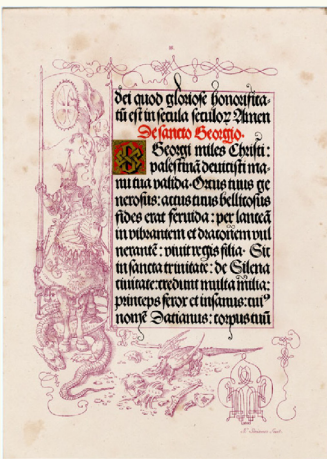 dei quod gloriose honorifica-
tū est in secula seculoꝝ Amen
De sancto Georgio.
O Georgi miles Christi:
palestinā devicisti ma-
nu tua valida. Ortus tuus ge
nerosus: actus tuus bellicosus
fides erat fervida: per lanceā
in vibrantem et draconem vul
nerantē: vivit regis filia. Sit
in sancta trinitate: de Silena
civitate: credunt multa milia:
princeps ferox et insanus: cuiꝰ
nomē Datianus: corpus tuū